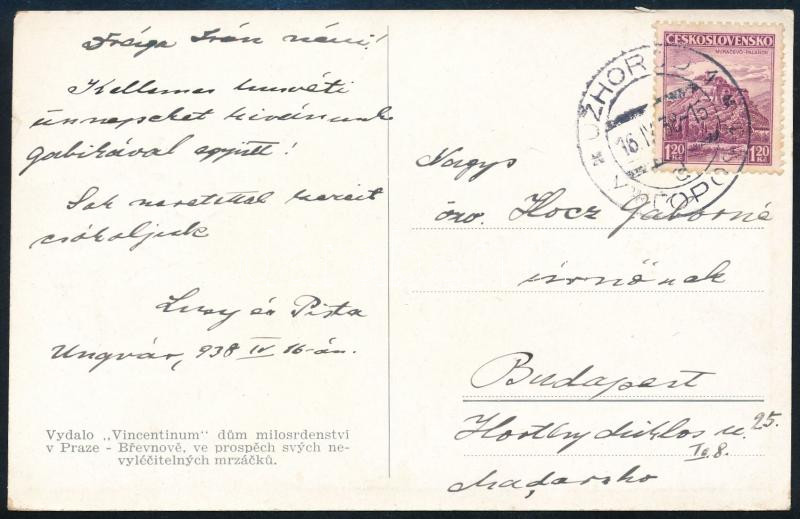 Drága Irén néni!
Kellemes husvéti
ünnepeket kivánunk
Gabikával együtt!
Sok szeretettel kezeit
csókoljuk
Lucy és Pista
Ungvár, 938 IV 16-án.
Vydalo „Vincentinum" dům milosrdenství
v Praze - Břevnově, ve prospěch svých ne-
vyléčitelných mrzáčků.
ČESKOSLOVENSKO
MUKAČEVO-PALANOK
1·20 Kč 1·20 Kč
UŽHOROD
16.IV.38.-15
УЖГОРОД
Nagys
özv. Hocz Gáborné
úrnőnek
Budapest
Horthy Miklos u. 25.
II. 8.
Maďarsko